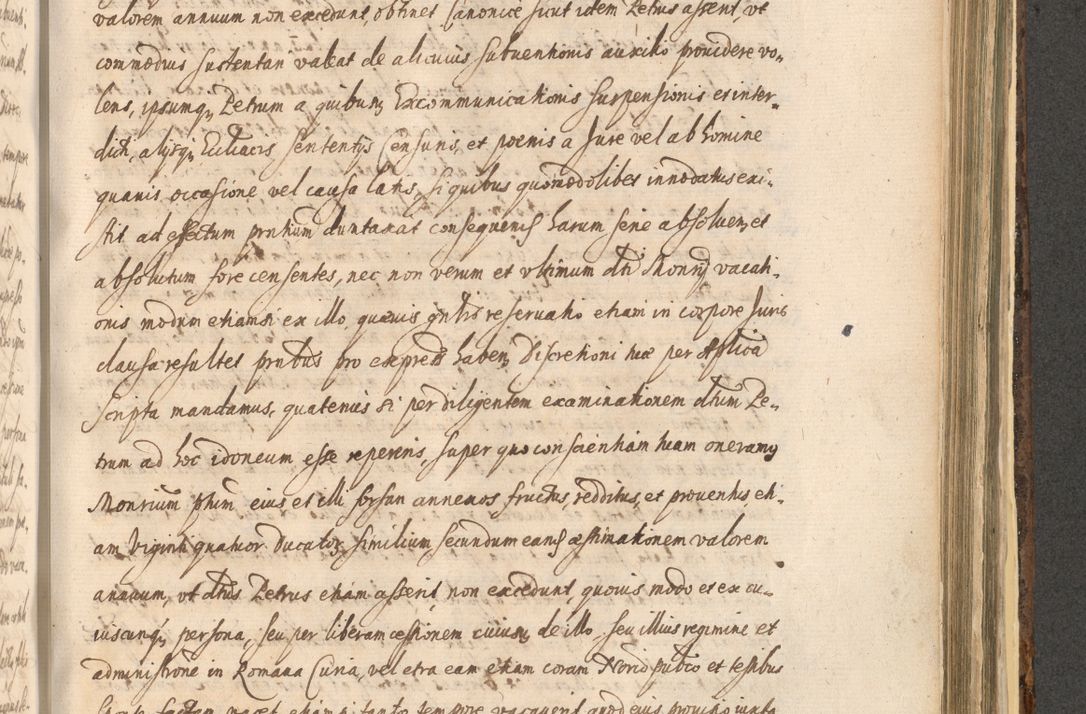 valorem annuum non excedunt, obtinet Canonice sicut idem Petrus asserit, ut
commodius sustentari valeat de alicuius subuentionis auxilio prouidere vo-
lens, ipsumq; Petrum a quibusuis Excommunicationis suspensionis et inter-
dicti, alijsq; Eccliacis sententijs Censuris, et poenis a Jure vel ab homine
quauis occasione vel causa latis, si quibus quomodolibet innodatus exi-
stit ad effectum pntium duntaxat consequend harum serie absoluen, et
absolutum fore censentes, nec non verum et ultimum dti Monrij vacati-
onis modum etiamsi ex illo, quæuis gnlis reseruatio etiam in corpore Juris
clausa resultet pntbus pro express haben, Discretioni tuæ per Aplica
scripta mandamus, quatenus si per diligentem examinationem dtum Pe-
trum ad hoc idoneum esse repereris, super quo conscientiam tuam oneramus
Monrium phim eius, et illi forsan annexos fructus, redditus, et prouentus, eti-
am Viginti quatuor Ducator; similium secundum eand æstimationem valorem
annuum, ut dtus Petrus etiam asserit, non excedunt, quouis modo et ex cu-
iuscunq; persona, seu per liberam cessionem cuiusuis de illo, seu illius regimine et
administrone in Romana Curia, vel extra eam etiam coram Norio publico et testibus
factam vacet etiamsi tanto tempore vacauerit quod eius prouisio iuxta